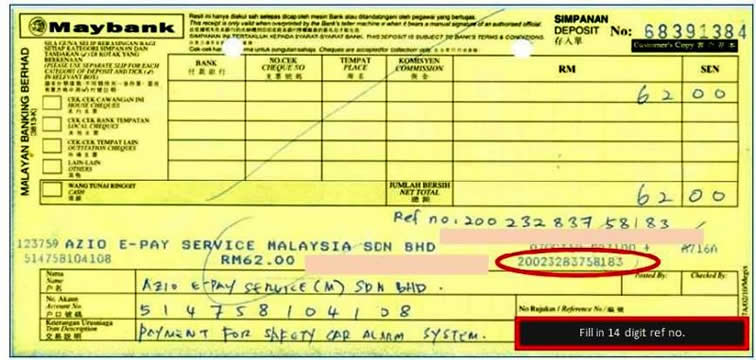 Maybank
Resit ini hanya diakui sah selepas dicap oleh mesin Bank atau ditandatangani oleh pegawai yang bertugas.
This receipt is only valid when overprinted by the Bank's teller machine or when it bears a manual signature of an authorised official.
SIMPANAN INI TERTAKLUK KEPADA SYARAT-SYARAT BANK. THIS DEPOSIT IS SUBJECT TO BANK'S TERMS & CONDITIONS.
untuk pungutan sahaja. Cheques are accepted for collection only.
SIMPANAN
DEPOSIT No: 68391384
存入單
Customer's Copy
SILA GUNA SLIP BERASINGAN BAGI
SETIAP KATEGORI SIMPANAN DAN
TANDAKAN (✓) DI KOTAK YANG
BERKENAAN
(PLEASE USE SEPARATE SLIP FOR EACH
CATEGORY OF DEPOSIT AND TICK (✓)
IN RELEVANT BOX)
MALAYAN BANKING BERHAD
(3813-K)
BANK NO.CEK TEMPAT KOMISYEN RM SEN
付款銀行 CHEQUE NO PLACE COMMISSION
支票號碼 地點 佣金
CEK-CEK CAWANGAN INI
HOUSE CHEQUES
62 00
CEK-CEK BANK TEMPATAN
LOCAL CHEQUES
CEK-CEK TEMPAT LAIN
OUTSTATION CHEQUES
LAIN-LAIN
OTHERS
WANG TUNAI RINGGIT
CASH
JUMLAH BERSIH
NET TOTAL
62 00
Ref no: 200 232 837 58183
123759 AZIO E-PAY SERVICE MALAYSIA SDN BHD A716A
514758104108 RM62.00 20023283758183
Posted By: Checked By:
Nama
Name
户名
AZIO E-PAY SERVICE (M) SDN BHD.
No. Akaun
Account No
户口號碼
514758104108
No Rujukan / Reference No /
Keterangan Urusniaga
Tran Description
交易説明
PAYMENT FOR SAFETY CAR ALARM SYSTEM.
Fill in 14 digit ref no.